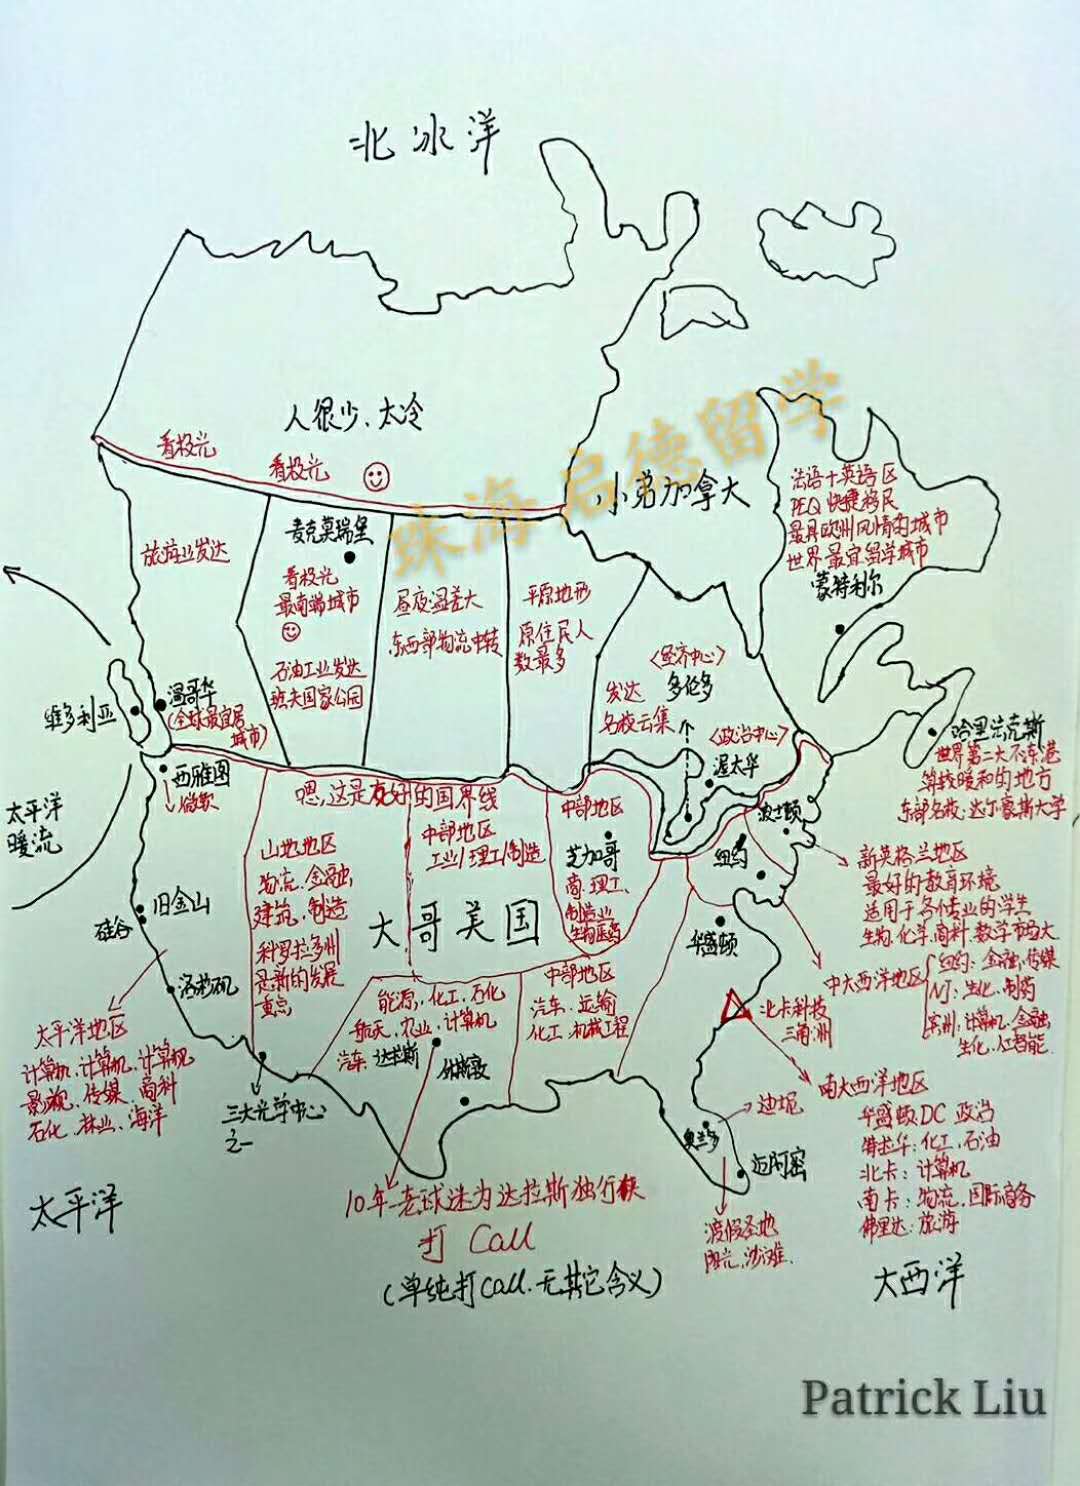 北冰洋
人很少、太冷
看极光
看极光
珠海启德留学
小弟加拿大
法语+英语区
PEQ 快捷移民
最具欧洲风情的城市
世界最宜留学城市
蒙特利尔
旅游业发达
麦克莫瑞堡
看极光
最南端城市
石油工业发达
班夫国家公园
昼夜温差大
东西部物流中转
平原地形
原住民人
数最多
<经济中心>
多伦多
发达
名校云集
<政治中心>
渥太华
维多利亚
温哥华
(全球最宜居
城市)
哈里法克斯
世界第二大不冻港
算较暖和的地方
东部名校:达尔豪斯大学
太平洋
暖流
西雅图
微软
嗯,这是友好的国界线
山地地区
物流、金融、
建筑、制造
科罗拉多州
是新的发展
重点
中部地区
工业/理工/制造
中部地区
芝加哥
商、理工、
制造业
生物医药
波士顿
纽约
华盛顿
新英格兰地区
最好的教育环境
适用于各个专业的学生
生物、化学、商科、数学市场大
旧金山
硅谷
洛杉矶
大哥美国
中大西洋地区
纽约:金融,传媒
NJ:生化、制药
宾州:计算机、金融,
生化、人工智能.
太平洋地区
计算机、计算机、计算机
影视、传媒、商科
石化、林业、海洋
能源、化工、石化
航天、农业、计算机
汽车、达拉斯
休斯敦
中部地区
汽车、运输
化工、机械工程
北卡科技
三角洲
三大光学中心
之一
南大西洋地区
华盛顿DC 政治
乔治华:化工、石油
北卡:计算机
南卡:物流、国际商务
佛里达:旅游
迪坭
奥兰多
迈阿密
渡假圣地
阳光,沙滩.
10年老球迷为达拉斯独行侠
打 Call
(单纯打call.无其它含义)
太平洋
大西洋
Patrick Liu